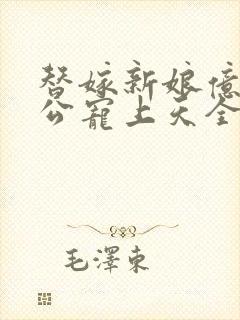 替嫁新娘億
公寵上天全
毛澤東